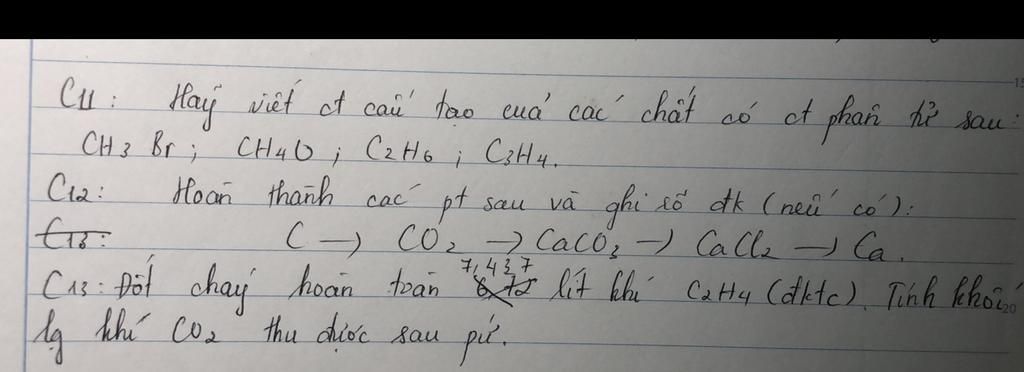 C11: Hãy viết ct cấu tạo của các chất có ct phân tử sau:
CH3Br; CH4O; C2H6; C3H4.
C12: Hoàn thành các pt sau và ghi rõ đk (nếu có):
C13: C → CO2 → CaCO3 → CaCl2 → Ca.
7,437
C13: Đốt cháy hoàn toàn 6,72 lít khí C2H4 (đktc). Tính khối
lg khí CO2 thu được sau pứ.